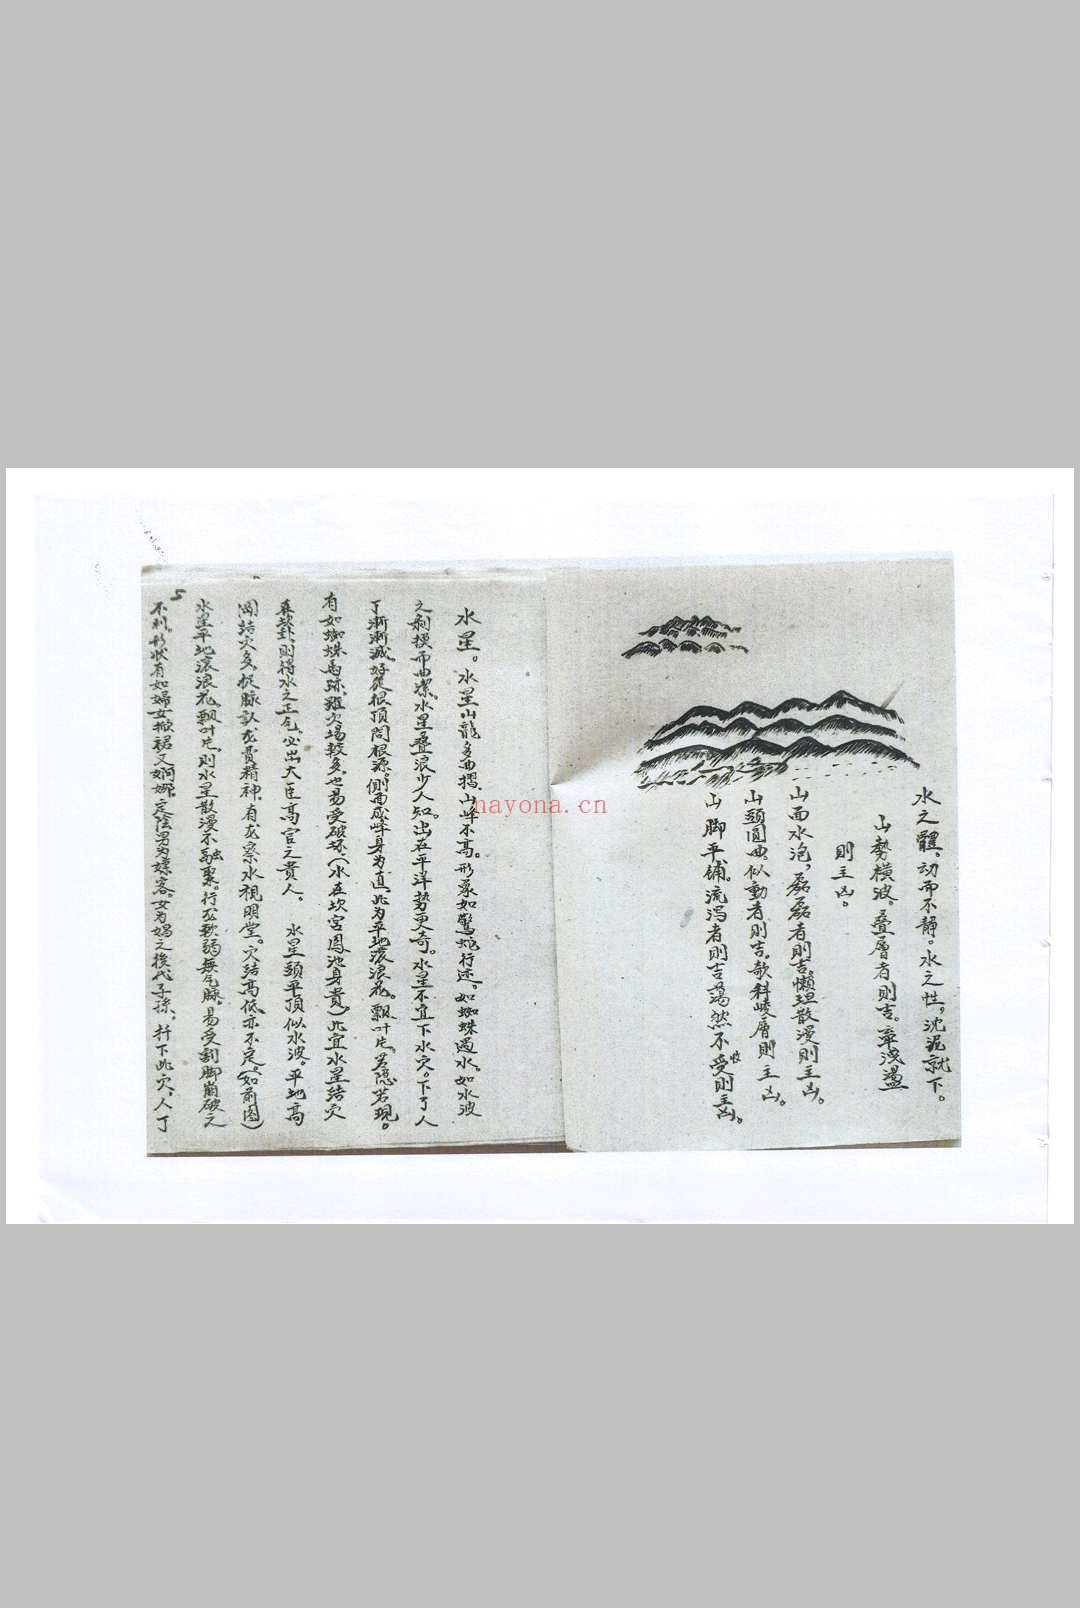 水之體。动而不静。水之性，沈泥就下。
山勢横波。叠層者則吉。牵浅盪
則主凶。
山面水泡，磊磊者則吉。懒坦散漫則主凶。
山頭圓曲。似動者則吉。欹斜崚層則主凶。
山脚平铺。流泻者則吉。荡然不收受則主凶。
水星。水星山龍多曲摺。山峰不高。形象如驚蛇行迹。如蜘蛛過水。如水波
之剥模而曲。水星叠浪少人知。出在平洋势更奇。水星不宜下水穴。下了人
丁渐渐减。好從根顶問根源。侧面成峰身为直。此为平地滚浪花。飄叶片。若隐若现。
有如蜘蛛馬跡。虽穴場较多。也易受破坏（水在坎宫凤池身貴）此宜水星结穴
在坎卦則得水之正气。必出大臣高官之贵人。 水星頭平顶似水波。平地高
岡结穴多。捉脉认龙骨精神。有龙察水視明堂。穴结高低亦不定。（如前图）
水星平地滚浪花。飘叶片。則水星散漫不融聚。行至软弱無气脉。易受割脚崩破之
不利。形状有如婦女掀裙又婀娜。定隂男为嫖客。女为娼之後代子孫、扦下此穴，人丁
5
nayona.cn